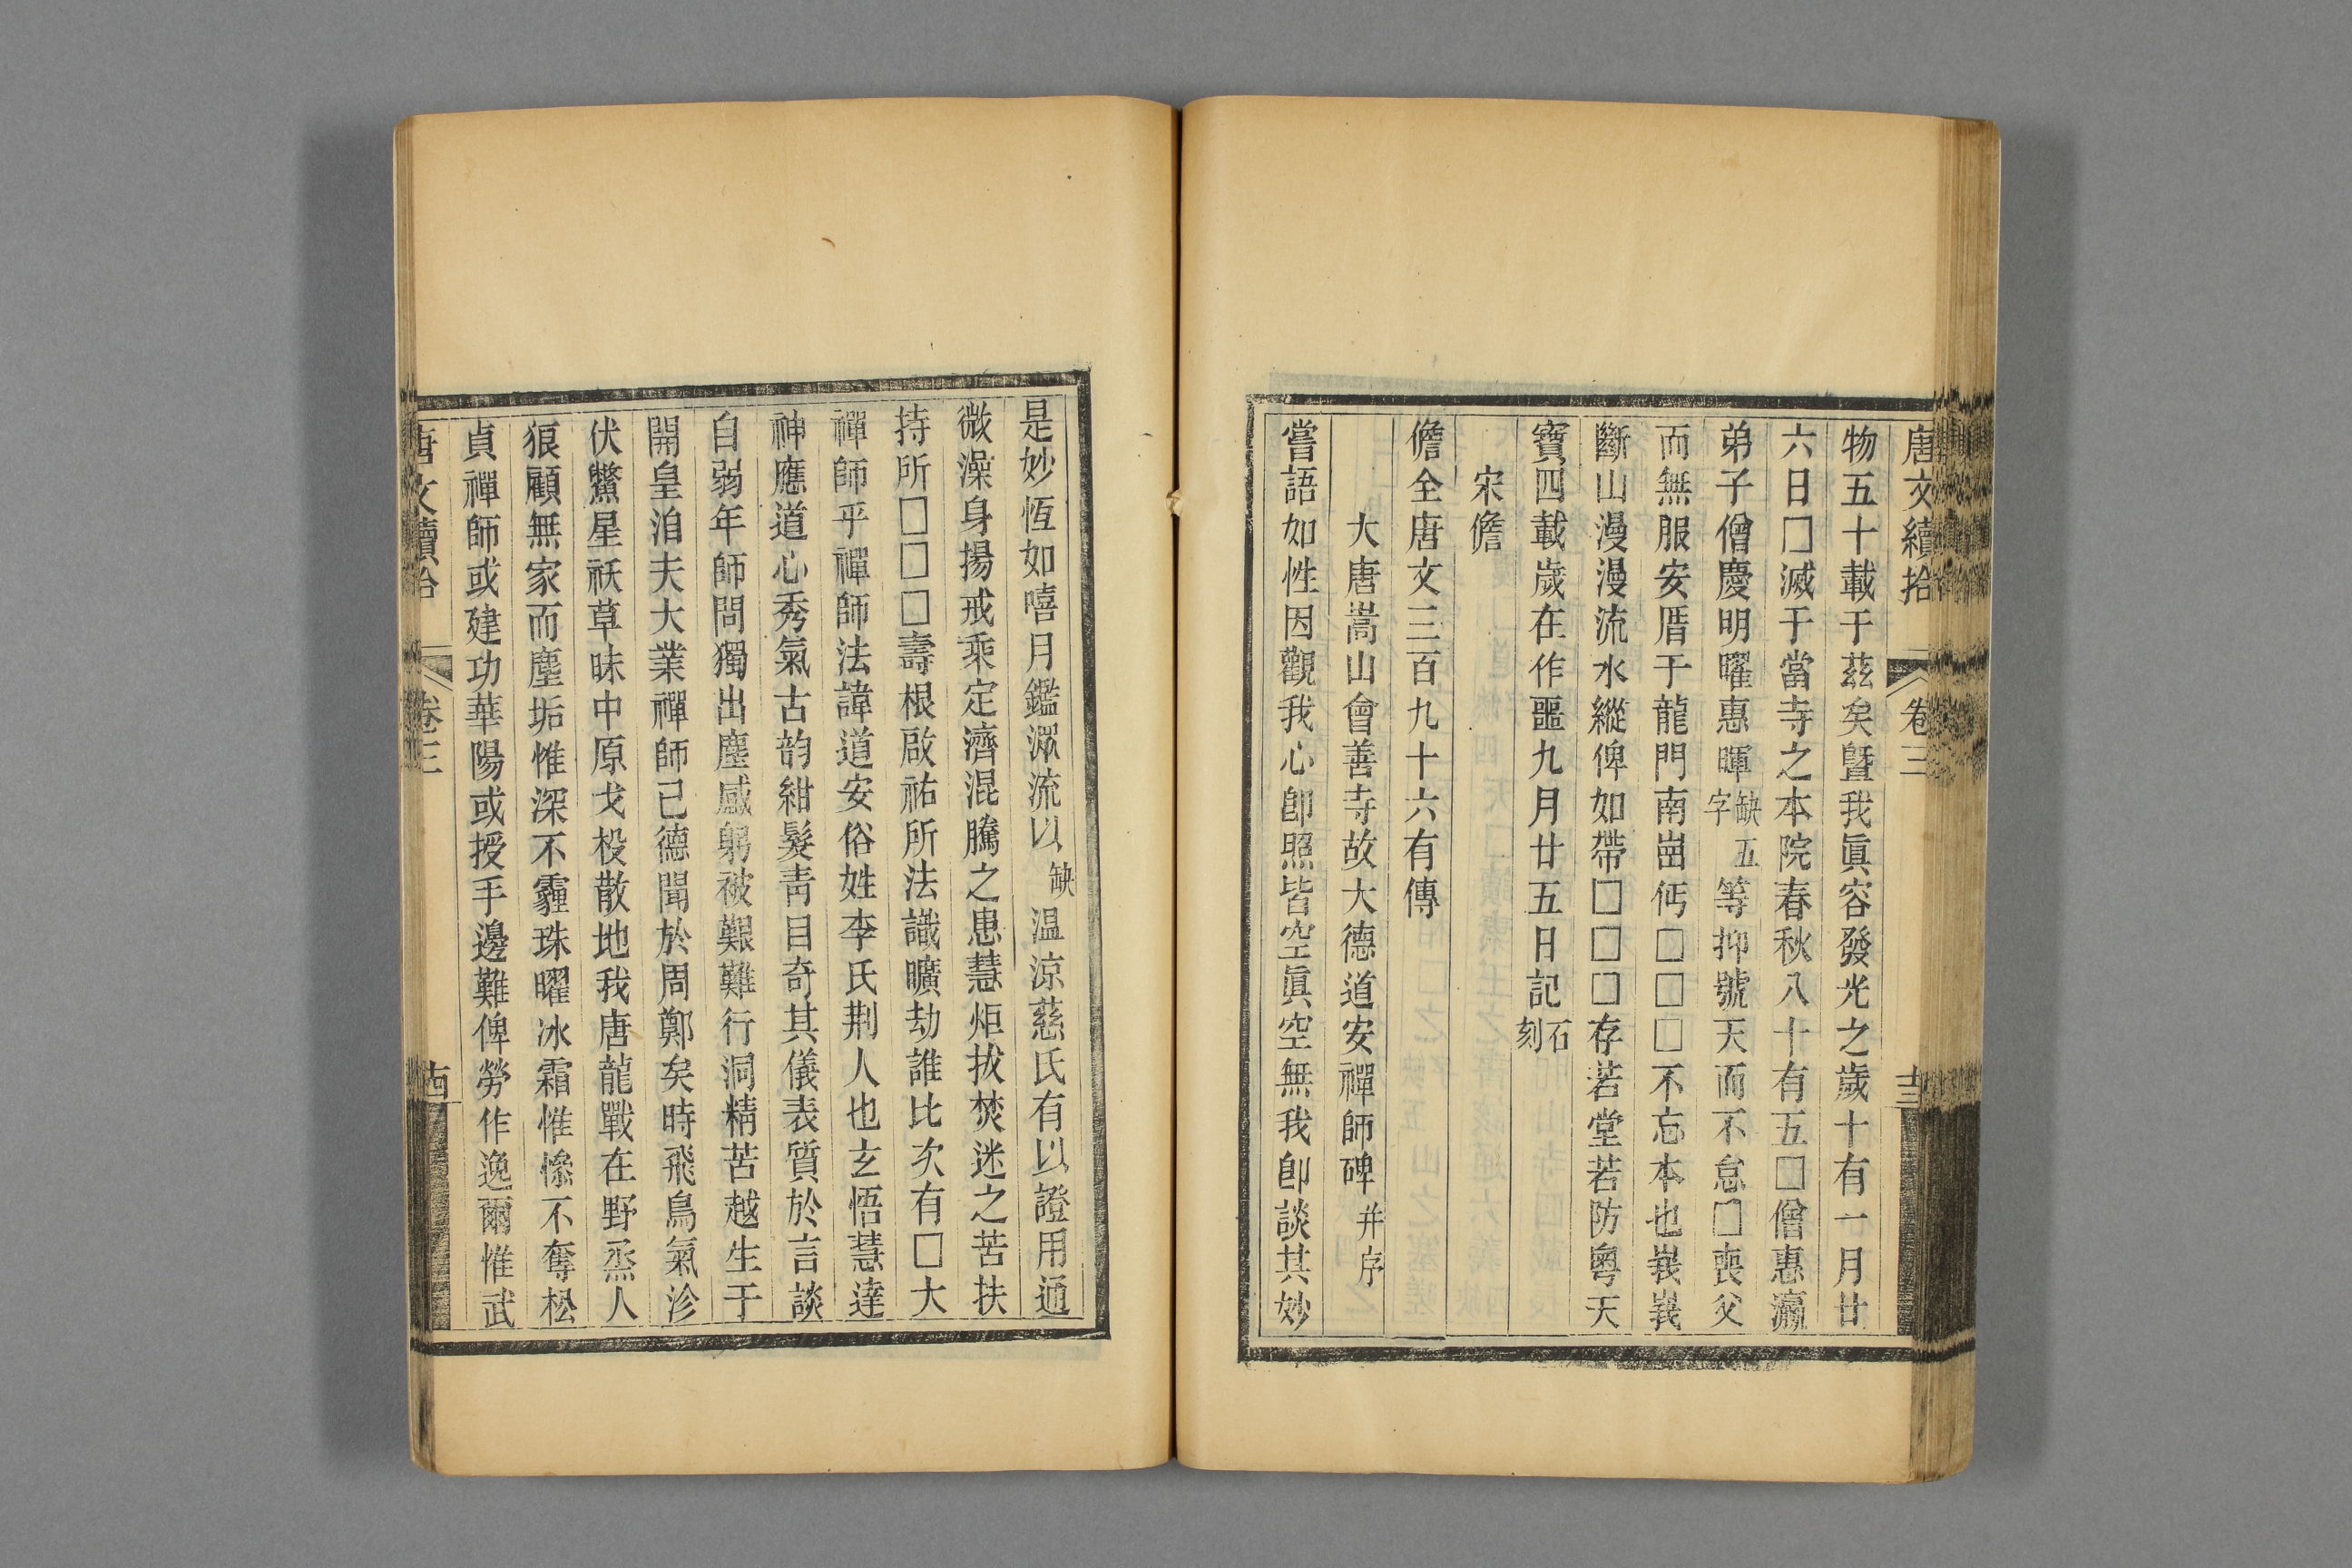 唐文續拾 卷三 十三
物五十載于茲矣曁我眞容發光之歲十有一月廿
六日□滅于當寺之本院春秋八十有五□僧惠瀛
弟子僧慶明曜惠暉缺五字等抑號天而不怠□喪父
而無服安厝于龍門南崗㑂□□□不忘本也峩峩
斷山漫漫流水縱俾如帶□□□存若堂若防粵天
寶四載歲在作噩九月廿五日記石刻
宋儋
儋全唐文三百九十六有傳
大唐嵩山會善寺故大德道安禪師碑并序
嘗語如性因觀我心卽照皆空眞空無我卽談其妙
是妙恆如嘻月鑑淵流以缺温涼慈氏有以證用通
微澡身揚戒乘定濟混騰之患慧炬拔焚迷之苦扶
持所□□□壽根啟祐所法識曠劫誰比次有□大
禪師乎禪師法諱道安俗姓李氏荆人也玄悟慧達
神應道心秀氣古韵紺髮靑目奇其儀表質於言談
自弱年師問獨出塵感躬被艱難行洞精苦越生于
開皇洎夫大業禪師已德聞於周鄭矣時飛鳥氣沴
伏鱉星祅草昧中原戈杸散地我唐龍戰在野烝人
狼顧無家而塵垢惟深不霾珠曜冰霜惟慘不奪松
貞禪師或建功華陽或授手邊難俾勞作逸爾惟武
唐文續拾 卷三 十四